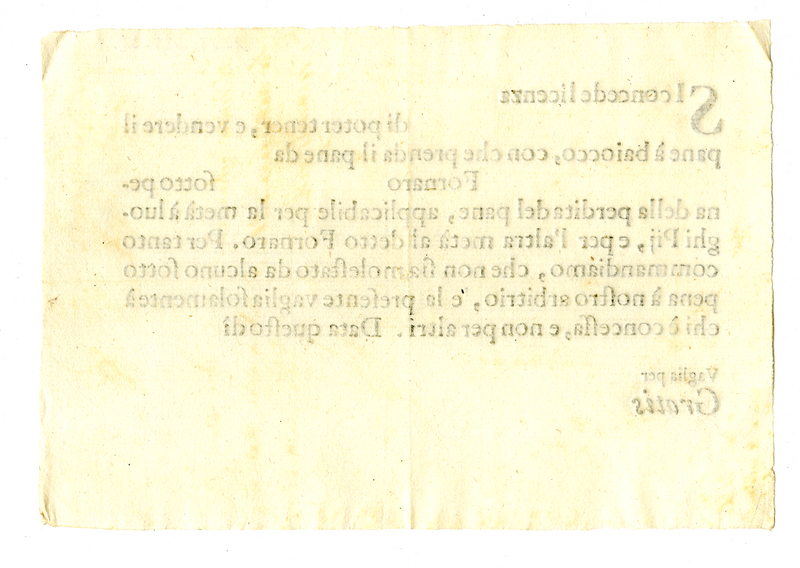 SI concede licenza
di poter tener, e vendere il
pane à baiocco, con che prenda il pane da
Fornaro ſotto pe-
na della perdita del pane, applicabile per la metà à luo-
ghi Pij, e per l'altra metà al detto Fornaro. Per tanto
commandiamo, che non ſia moleſtato da alcuno ſotto
pena à noſtro arbitrio, e la preſente vaglia ſolamente à
chi è conceſſa, e non per altri. Data queſto dì
Vaglia per
Gratis